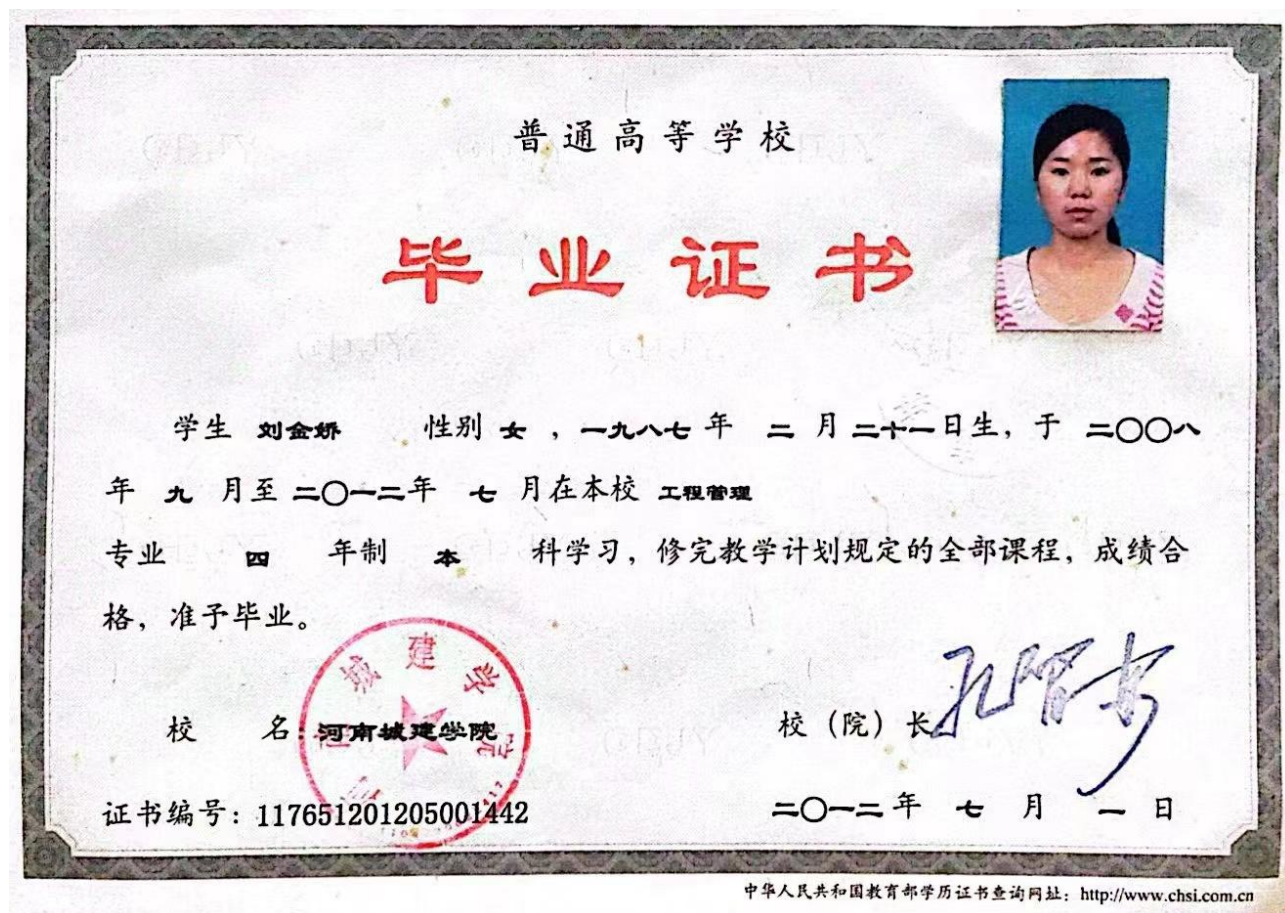 普通高等学校
毕业证书
学生 刘金娇 性别 女 ，一九八七 年 二 月 二十一日生，于 二〇〇八
年 九 月至 二〇一二年 七 月在本校 工程管理
专业 四 年制 本 科学习，修完教学计划规定的全部课程，成绩合
格，准予毕业。
校 名：河南城建学院
校（院）长
证书编号：117651201205001442
二〇一二年 七 月 一 日
中华人民共和国教育部学历证书查询网址：http://www.chsi.com.cn